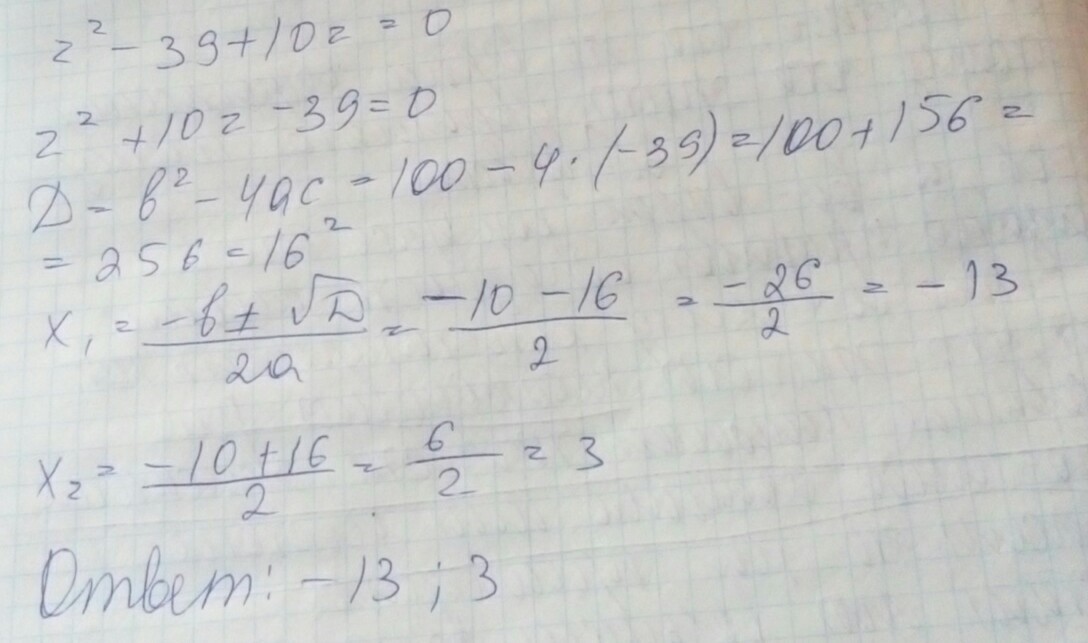 z² - 39 + 10z = 0
z² + 10z - 39 = 0
D = b² - 4ac = 100 - 4 · (-39) = 100 + 156 =
= 256 = 16²
x₁ = (-b ± √D)/(2a) = (-10 - 16)/2 = (-26)/2 = -13
x₂ = (-10 + 16)/2 = 6/2 = 3
Ответ: -13 ; 3